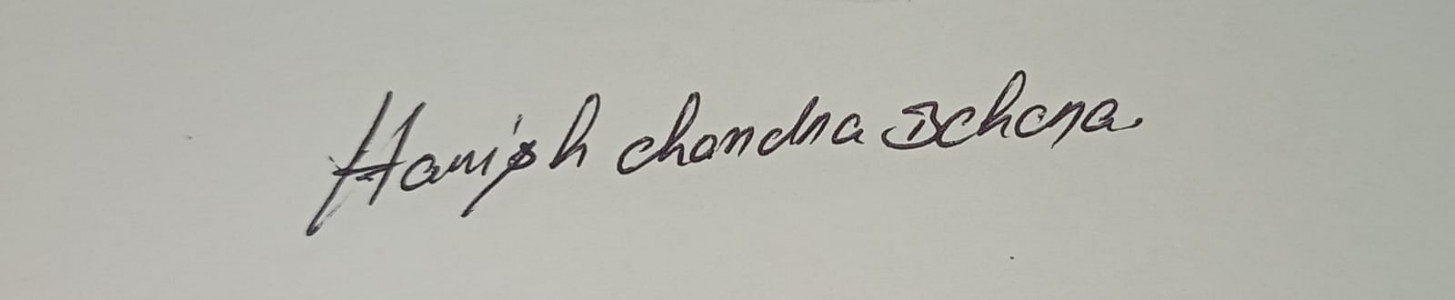 Harish chandra Behera